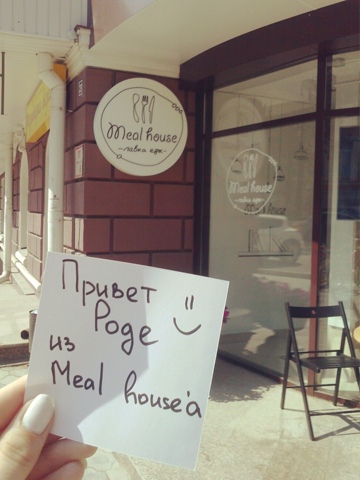 Meal house
лавка еды
Meal house
лавка еды
Привет
Роде
из
Meal house'а